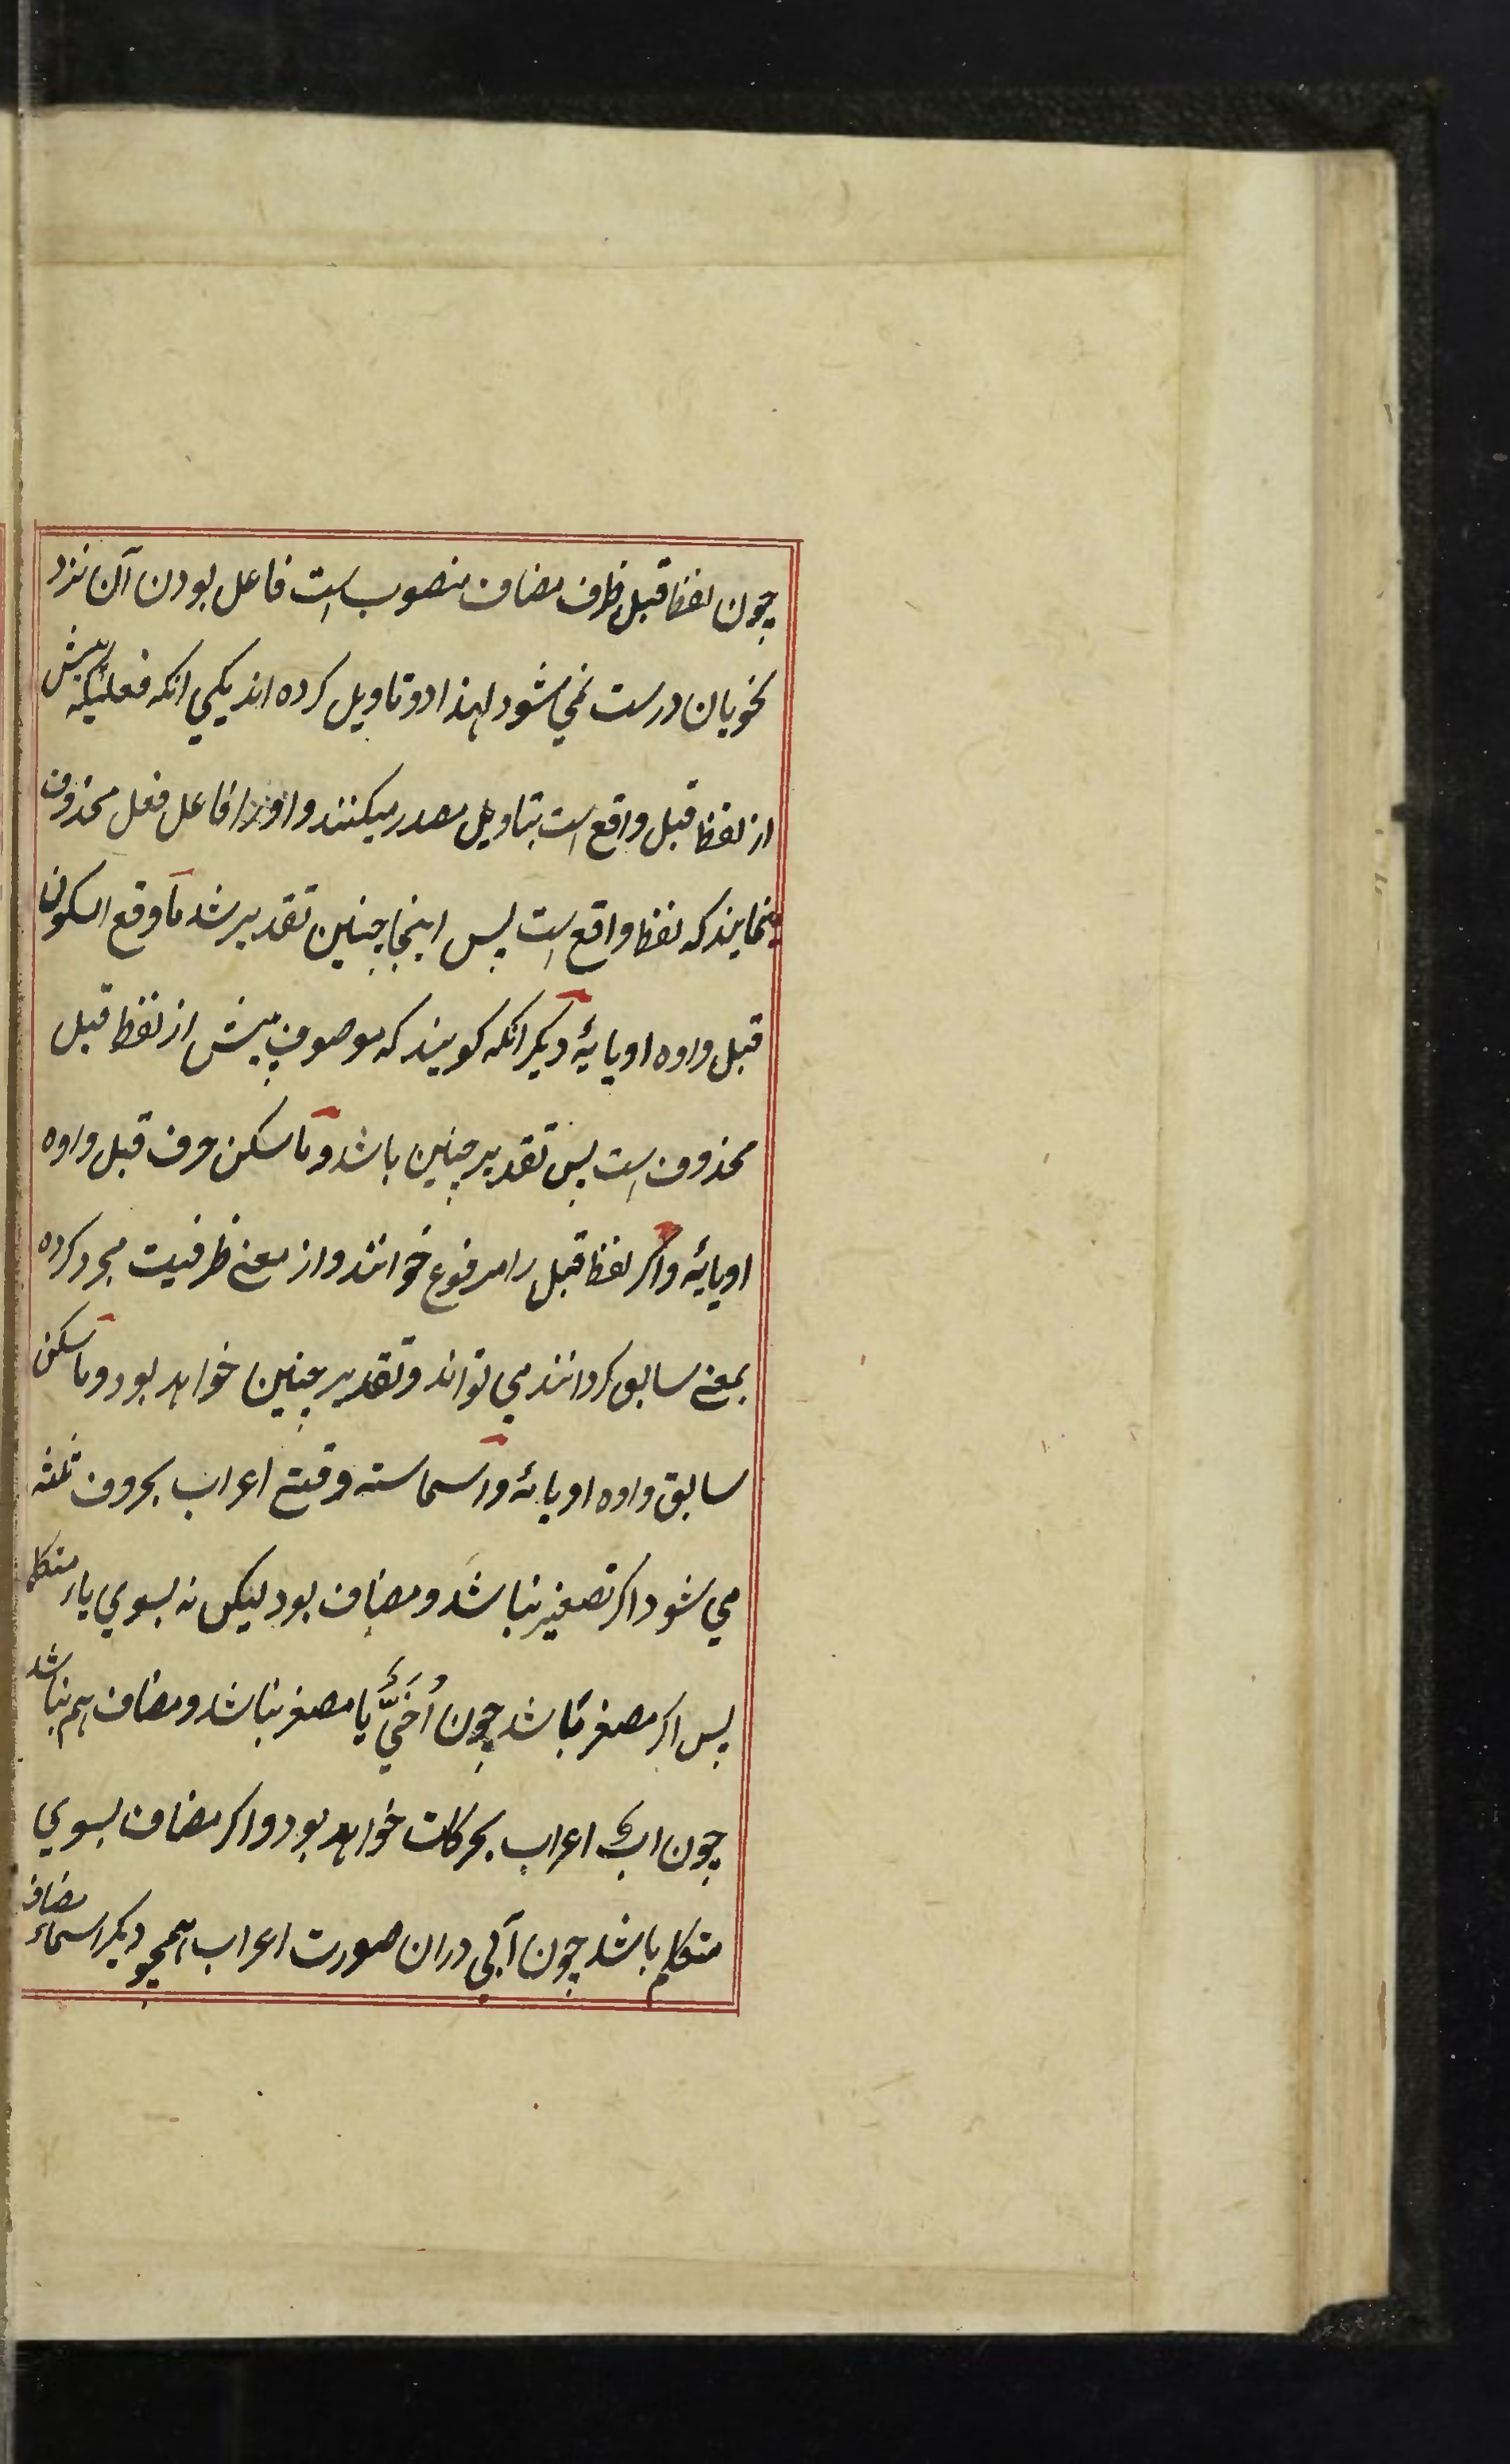 چون لفظ قبل ظرف مضاف منصوب است فاعل بودن آن نزد
نحویان درست نمی شود لهذا دو تاویل کرده اند یکی انکه فعلیکه پیش
از لفظ قبل واقع است بتاویل مصدر میکنند و او را فاعل فعل محذوف
مینمایند که لفظ واقع است پس اینجا چنین تقدیر شد ما وقع السکون
قبل واوه او یایهٔ دیکر انکه کویند که موصوف پیش از لفظ قبل
محذوف است پس تقدیر چنین باشد و ما سکن حرف قبل واوه
او یایهٔ و اکر لفظ قبل را مرفوع خوانند و از معنے ظرفیت مجرد کرده
بمعنے سابق کردانند می تواند و تقدیر چنین خواهد بود و ما سکن
سابق واوه او یائهٔ و اسما سته وقتے اعراب بحروف ثلثه
می شود اکر تصغیر نباشد و مضاف بود لیکن نه بسوي یاء متکلم
پس اکر مصغر باشد چون اُخَيٌّ یا مصغر نباشد و مضاف هم نباشد
چون ابٌ اعراب بحرکات خواهد بود و اکر مضاف بسوي
متکلم باشد چون آبي دران صورت اعراب همچو دیکر اسماء مضاف